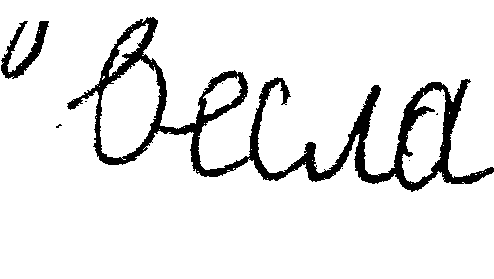 весла